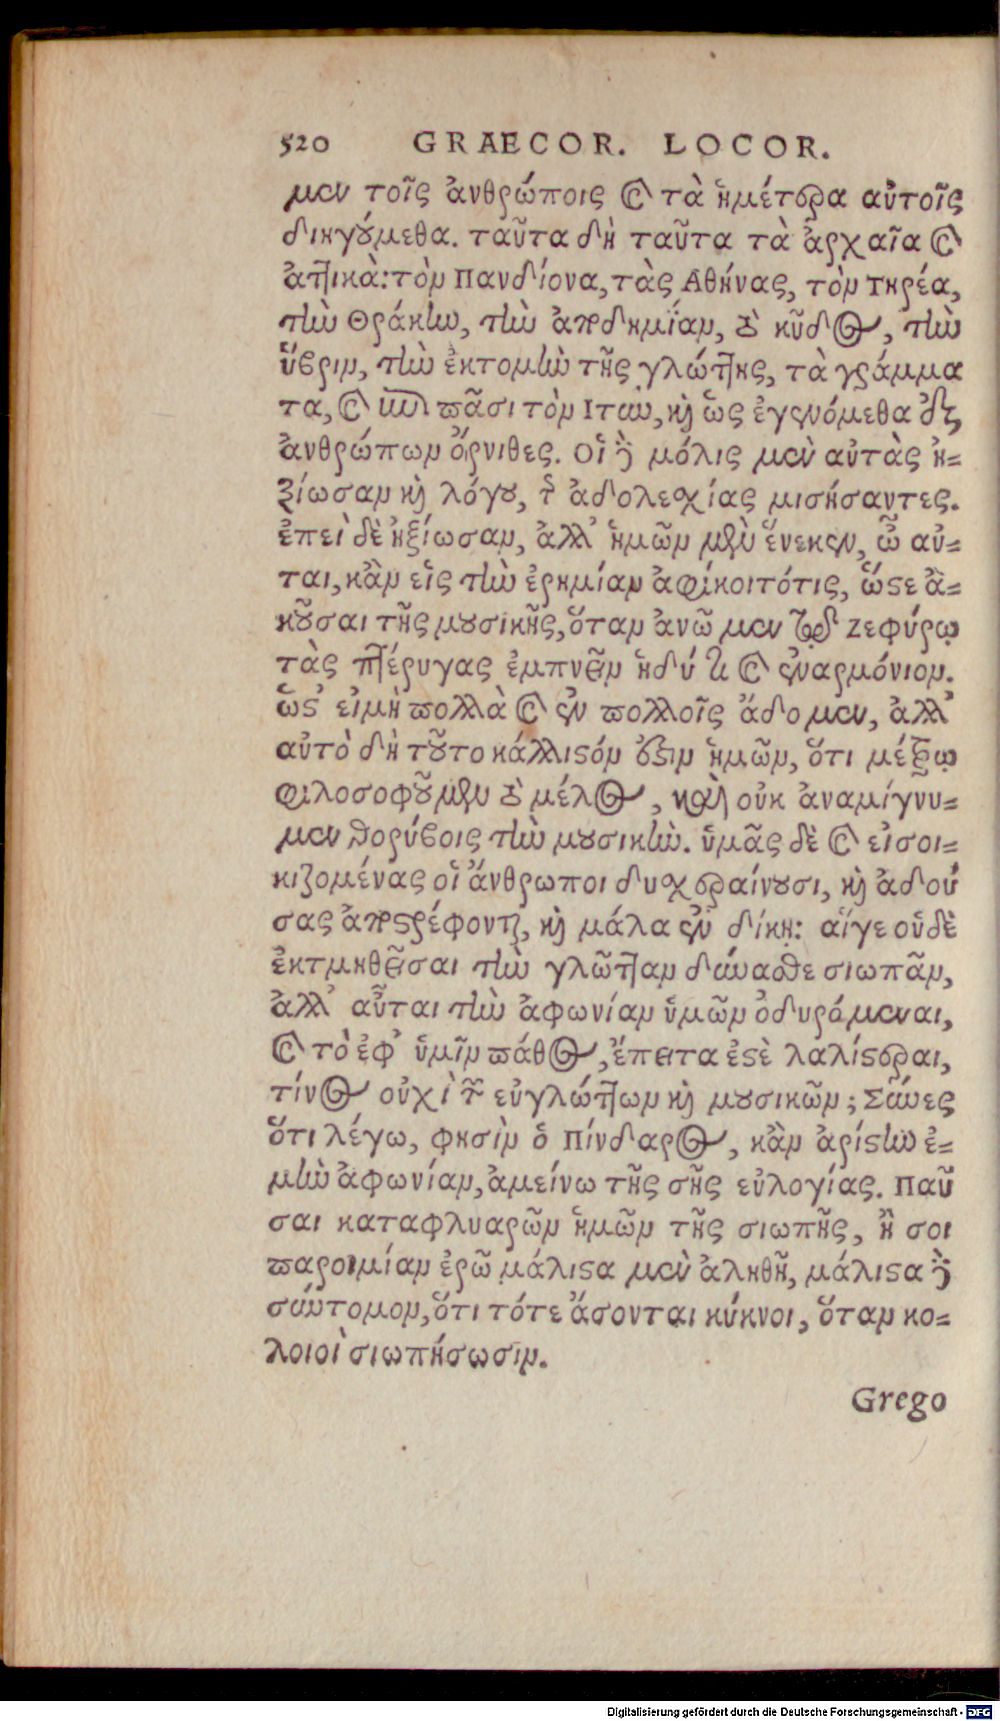 520 GRAECOR. LOCOR.
μεν τοῖς ἀνθρώποις καὶ τὰ ἡμέτερα αὐτοῖς
διηγούμεθα. ταῦτα δὴ ταῦτα τὰ ἀρχαῖα καὶ
ἀττικὰ: τὸν Πανδίονα, τὰς Αθήνας, τὸν Τηρέα,
τὴν Θράκην, τὴν ἀποδημίαν, τὸ κῆδος, τὴν
ὕβριν, τὴν ἐκτομὴν τῆς γλώττης, τὰ γράμμα
τα, καὶ ἐπὶ πᾶσι τὸν Ιτυν, καὶ ὡς ἐγενόμεθα ἐξ
ἀνθρώπων ὄρνιθες. Οἱ δὲ μόλις μὲν αὐτὰς ἠ-
ξίωσαν καὶ λόγου, τῆς ἀδολεσχίας μισήσαντες.
ἐπεὶ δὲ ἠξίωσαν, ἀλλ' ἡμῶν μὲν ἕνεκεν, ὦ αὗ-
ται, κἂν εἰς τὴν ἐρημίαν ἀφίκοιτό τις, ὥστε ἀ-
κοῦσαι τῆς μουσικῆς, ὅταν ἀνῶμεν τῷ ζεφύρῳ
τὰς πτέρυγας ἐμπνεῖν ἡδύ τι καὶ ἐναρμόνιον.
ὥστ' εἰ μὴ πολλὰ καὶ ἐν πολλοῖς ᾄδομεν, ἀλλ'
αὐτὸ δὴ τοῦτο κάλλιστόν ἐστιν ἡμῶν, ὅτι μέτρῳ
φιλοσοφοῦμεν τὸ μέλος, καὶ οὐκ ἀναμίγνυ-
μεν θορύβοις τὴν μουσικήν. ὑμᾶς δὲ καὶ εἰσοι-
κιζομένας οἱ ἄνθρωποι δυσχεραίνουσι, καὶ ἀδού
σας ἀποστρέφονται, καὶ μάλα ἐν δίκῃ: αἵγε οὐδὲ
ἐκτμηθεῖσαι τὴν γλῶτταν δύνασθε σιωπᾶν,
ἀλλ' αὗται τὴν ἀφωνίαν ὑμῶν ὀδυράμεναι,
καὶ τὸ ἐφ' ὑμῖν πάθος, ἔπειτα ἐστὲ λαλίστεραι,
τίνος οὐχὶ τῶν εὐγλώττων καὶ μουσικῶν; Σύνες
ὅτι λέγω, φησὶν ὁ Πίνδαρος, κἂν ἀρίστην ἐ-
μὴν ἀφωνίαν, ἀμείνω τῆς σῆς εὐλογίας. Παῦ
σαι καταφλυαρῶν ἡμῶν τῆς σιωπῆς, ἤ σοι
παροιμίαν ἐρῶ μάλιστα μὲν ἀληθῆ, μάλιστα δὲ
σύντομον, ὅτι τότε ᾄσονται κύκνοι, ὅταν κο-
λοιοὶ σιωπήσωσιν.
Grego
Digitalisierung gefördert durch die Deutsche Forschungsgemeinschaft - DFG